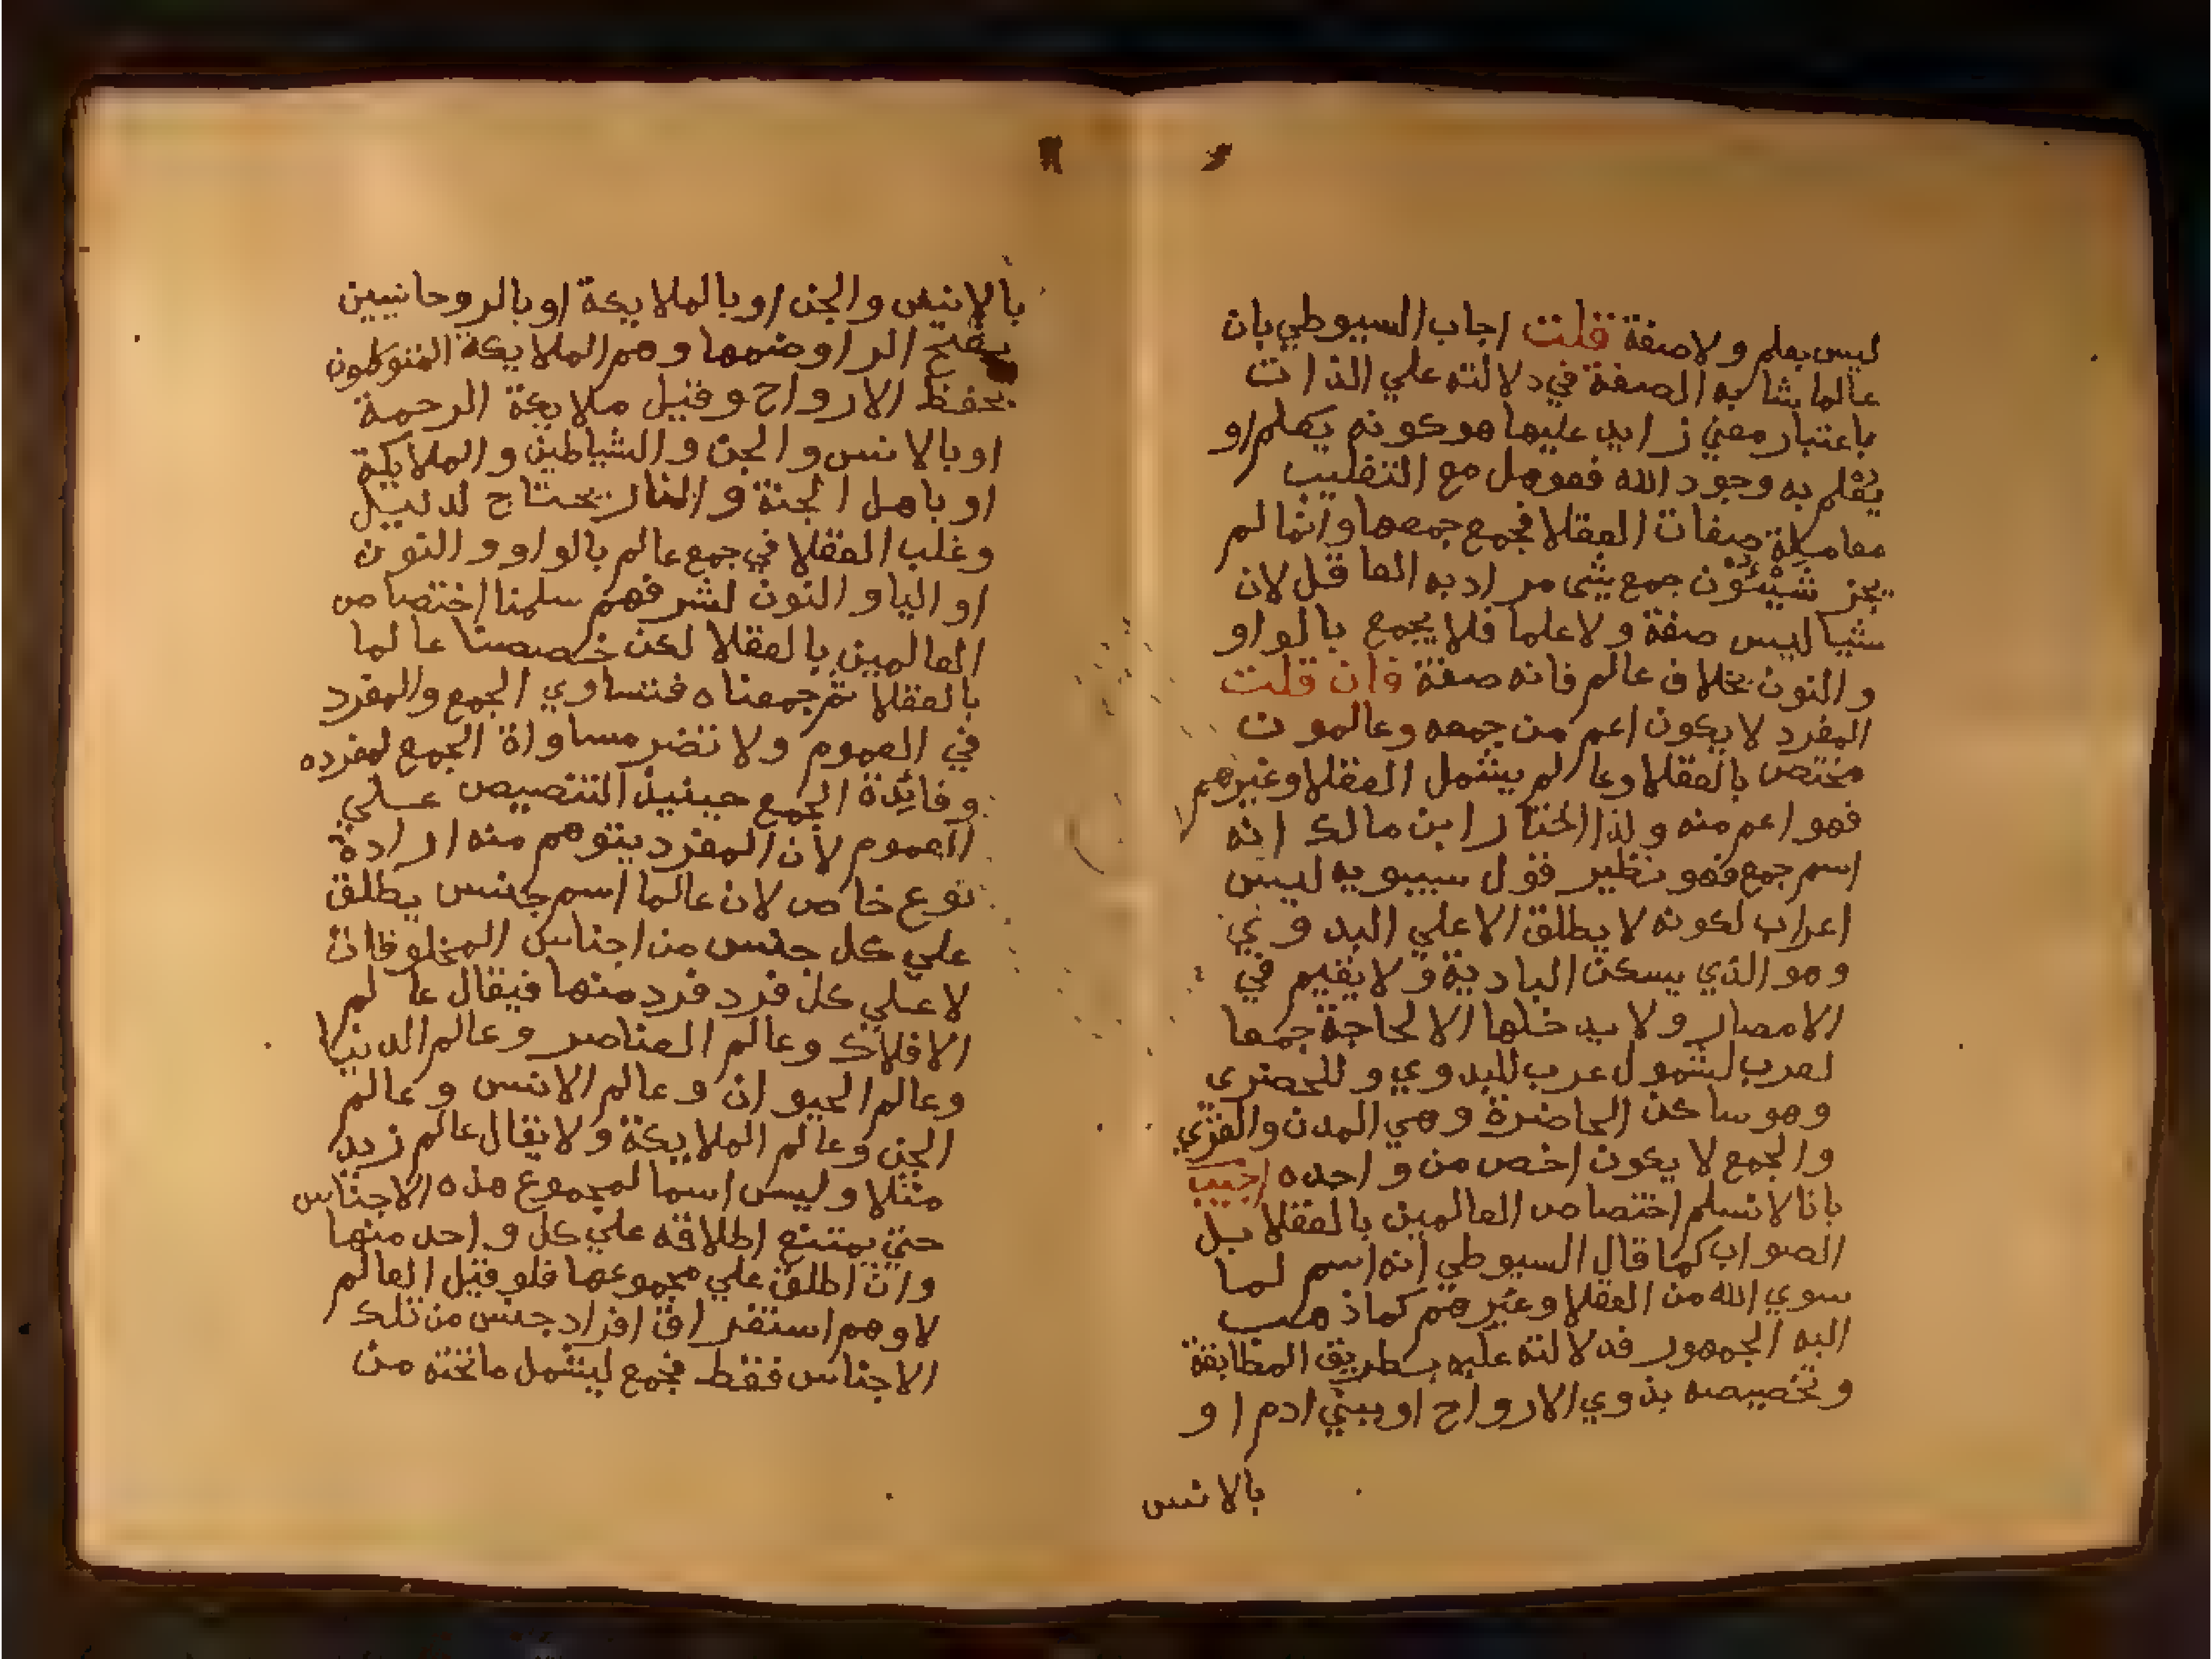 ليس بعلم ولا صفة قلت اجاب السيوطي بان
عالما شابه الصفة في دلالته علي الذات
باعتبار معني زايد عليها هو كونه يعلم او
يعلم به وجود الله فعومل مع التغليب
معاملة صفات العقلا فجمع جمعها وانما لم
يجز شيئون جمع شي مراد به العاقل لان
شيا ليس صفة ولا علما فلا يجمع بالواو
والنون بخلاف عالم فانه صفة فان قلت
المفرد لا يكون اعم من جمعه وعالمون
مختص بالعقلا وعالم يشمل العقلا وغيرهم
فهو اعم منه ولذا اختار ابن مالك انه
اسم جمع فهو نظير قول سيبويه ليس
اعراب لكونه لا يطلق الا علي البدوي
وهو الذي يسكن البادية ولا يقيم في
الامصار ولا يدخلها الا لحاجة جمعا
لعرب لشمول عرب للبدوي وللحضري
وهو ساكن الحاضرة وهي المدن والقري
والجمع لا يكون اخص من واحده اجيب
بانا لا نسلم اختصاص العالمين بالعقلا بل
الصواب كما قال السيوطي انه اسم لما
سوي الله من العقلا وغيرهم كما ذهب
اليه الجمهور فدلالته عليه بطريق المطابقة
وتخصيصه بذوي الارواح او ببني ادم او
بالانس
بالانس والجن او بالملايكة او بالروحانيين
بفتح الرا وضمها وهم الملايكة المتوكلون
بحفظ الارواح وقيل ملايكة الرحمة
او بالانس والجن والشياطين والملايكة
او باهل الجنة والنار يحتاج لدليل
وغلب العقلا في جمع عالم بالواو والنون
او اليا والنون لشرفهم سلمنا اختصاص
العالمين بالعقلا لكن خصصنا عالما
بالعقلا ثم جمعناه فتساوي الجمع والمفرد
في العموم ولا تضر مساواة الجمع لمفرده
وفائدة الجمع حينيذ التنصيص علي
العموم لأن المفرد يتوهم منه ارادة
نوع خاص لان عالما اسم جنس يطلق
علي كل جنس من اجناس المخلوقات
لا علي كل فرد فرد منها فيقال عالم
الافلاك وعالم العناصر وعالم الدنيا
وعالم الحيوان وعالم الانس وعالم
الجن وعالم الملايكة ولا يقال عالم زيد
مثلا وليس اسما لمجموع هذه الاجناس
حتي يمتنع اطلاقه علي كل واحد منها
وان اطلق علي مجموعها فلو قيل العالم
لاوهم استغراق افراد جنس من تلك
الاجناس فقط فجمع ليشمل ما تحته من